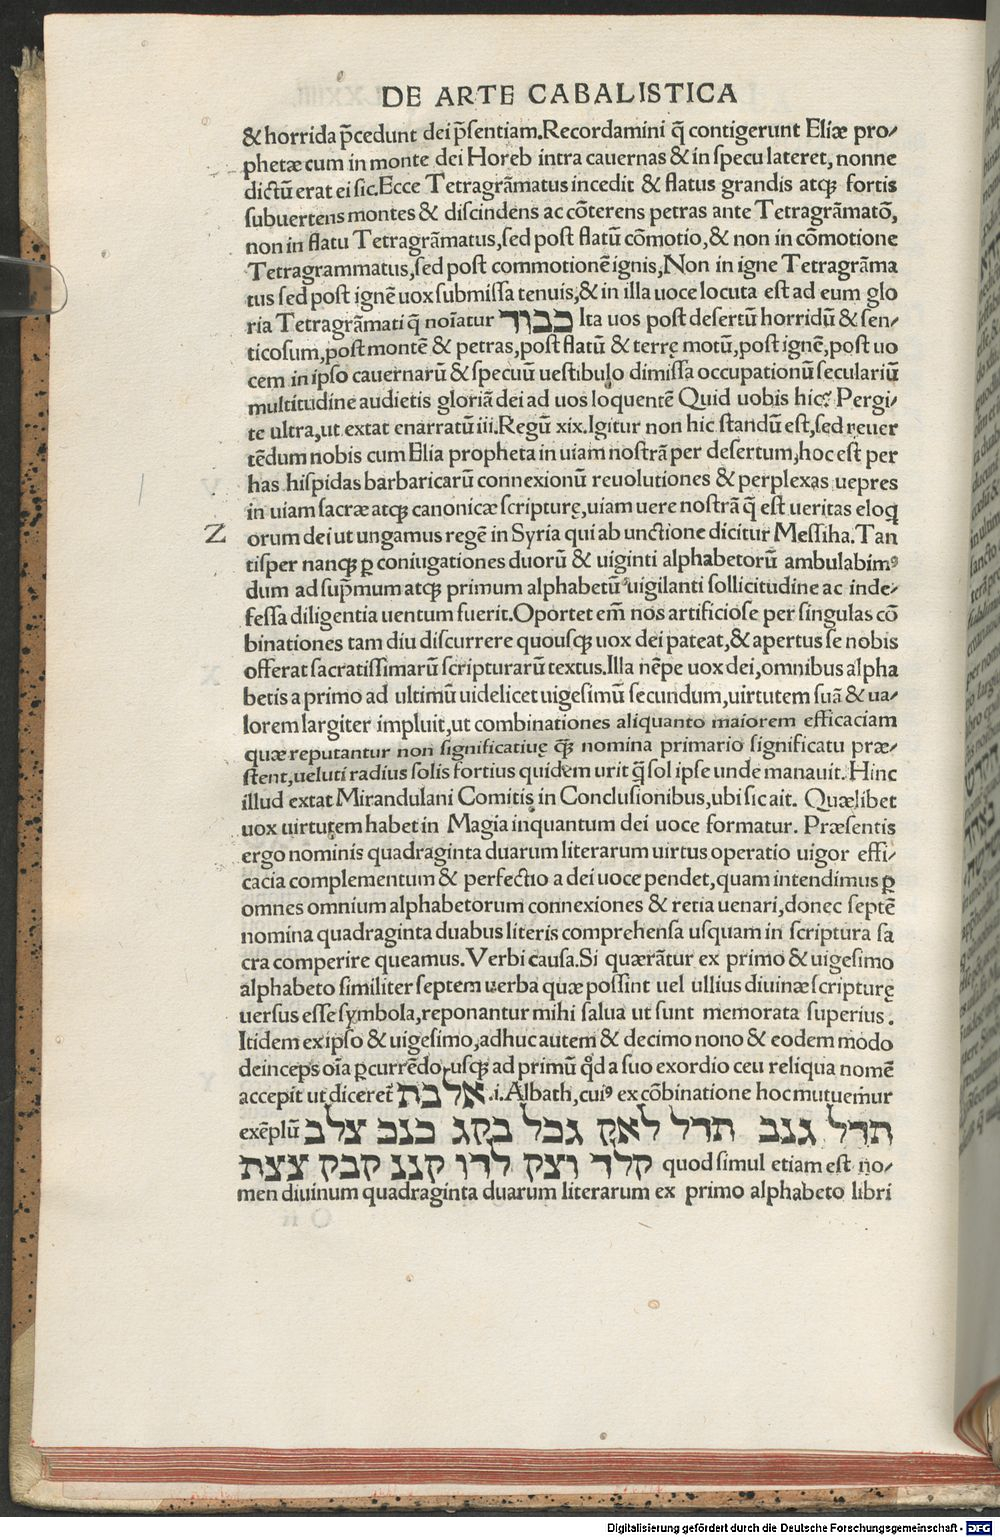 DE ARTE CABALISTICA
& horrida p̃cedunt dei p̃sentiam. Recordamini q̃ contigerunt Eliæ pro/
phetæ cum in monte dei Horeb intra cauernas & in specu lateret, nonne
dictũ erat ei sic. Ecce Tetragrãmatus incedit & flatus grandis atqꝫ fortis
subuertens montes & discindens ac cõterens petras ante Tetragrãmatõ,
non in flatu Tetragrãmatus, sed post flatũ cõmotio, & non in cõmotione
Tetragrammatus, sed post commotionẽ ignis, Non in igne Tetragrãma
tus sed post ignẽ uox submissa tenuis, & in illa uoce locuta est ad eum glo
ria Tetragrãmati q̃ noĩatur כבוד Ita uos post desertũ horridũ & sen/
ticosum, post montẽ & petras, post flatũ & terrę motũ, post ignẽ, post uo
cem in ipso cauernarũ & specuũ uestibulo dimissa occupationũ seculariũ
multitudine audietis gloriã dei ad uos loquentẽ Quid uobis hic? Pergi/
te ultra, ut extat enarratũ iii. Regũ xix. Igitur non hic standũ est, sed reuer
tẽdum nobis cum Elia propheta in uiam nostrã per desertum, hoc est per
has hispidas barbaricarũ connexionũ reuolutiones & perplexas uepres
in uiam sacræ atqꝫ canonicæ scripturę, uiam uere nostrã q̃ est ueritas eloq
Z orum dei ut ungamus regẽ in Syria qui ab unctione dicitur Messiha. Tan
tisper nanqꝫ ꝑ coniugationes duorũ & uiginti alphabetorũ ambulabimꝰ
dum ad sup̃mum atqꝫ primum alphabetũ uigilanti sollicitudine ac inde/
fessa diligentia uentum fuerit. Oportet em̃ nos artificiose per singulas cõ
binationes tam diu discurrere quousqꝫ uox dei pateat, & apertus se nobis
offerat sacratissimarũ scripturarũ textus. Illa nẽpe uox dei, omnibus alpha
betis a primo ad ultimũ uidelicet uigesimũ secundum, uirtutem suã & ua/
lorem largiter impluit, ut combinationes aliquanto maiorem efficaciam
quæ reputantur non significatiuę qꝫ̃ nomina primario significatu præ/
stent, ueluti radius solis fortius quidem urit q̃ sol ipse unde manauit. Hinc
illud extat Mirandulani Comitis in Conclusionibus, ubi sic ait. Quælibet
uox uirtutem habet in Magia inquantum dei uoce formatur. Præsentis
ergo nominis quadraginta duarum literarum uirtus operatio uigor effi/
cacia complementum & perfectio a dei uoce pendet, quam intendimus ꝑ
omnes omnium alphabetorum connexiones & retia uenari, donec septẽ
nomina quadraginta duabus literis comprehensa usquam in scriptura sa
cra comperire queamus. Verbi causa. Si quærãtur ex primo & uigesimo
alphabeto similiter septem uerba quæ possint uel ullius diuinæ scripturę
uersus esse symbola, reponantur mihi salua ut sunt memorata superius.
Itidem ex ipso & uigesimo, adhuc autem & decimo nono & eodem modo
deinceps oĩa ꝑcurrẽdo, usqꝫ ad primũ qd̃ a suo exordio ceu reliqua nomẽ
accepit ut diceret̃ אלבת .i. Albath, cuiꝰ ex cõbinatione hoc mutuemur
exẽplũ תדל גנב תדל לאק גבל בקג כנב צלב
קלד וצק לדו קננ קבק צצת quod simul etiam est no/
men diuinum quadraginta duarum literarum ex primo alphabeto libri
Digitalisierung gefördert durch die Deutsche Forschungsgemeinschaft - DFG